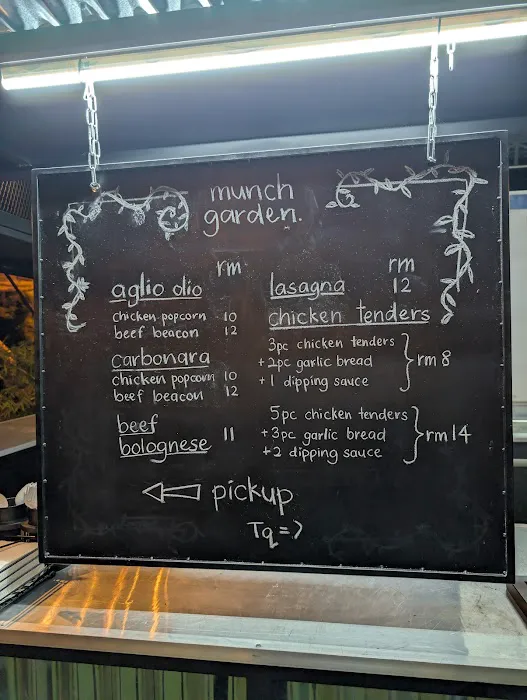 munch
garden.
rm
aglio olio
chicken popcorn 10
beef beacon 12
carbonara
chicken popcorn 10
beef beacon 12
beef
bolognese 11
rm
lasagna 12
chicken tenders
3pc chicken tenders
+2pc garlic bread
+1 dipping sauce
rm 8
5pc chicken tenders
+3pc garlic bread
+2 dipping sauce
rm 14
pickup
Tq =>